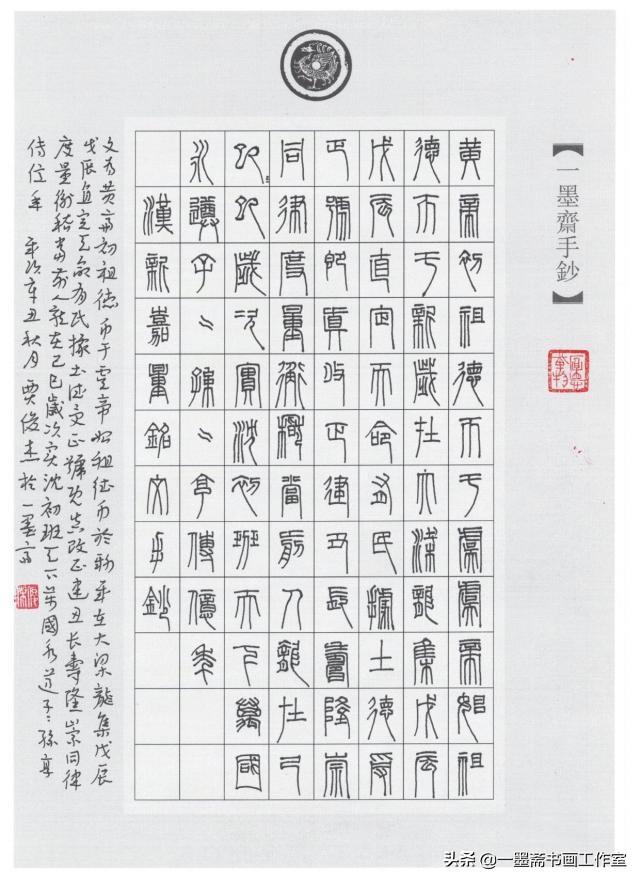 【一墨齋手鈔】
黃帝初祖德帀于虞虞帝始祖
德帀于新歲在大梁龍集戊辰
戊辰直定天命有民據土德受
正號即真改正建丑長壽隆崇
同律度量衡稽當前人龍在己
巳巳歲次實沈初班天下萬國
永遵子〻孫〻享傳億年
漢新嘉量銘文手鈔
文為黃帝初祖德帀于虞帝始祖德帀於新歲在大梁龍集戊辰
戊辰直定天命有民據土德受正號即真改正建丑長壽隆崇同律
度量衡稽當前人龍在己巳歲次實沈初班天下萬國永遵子〻孫享
傳億年 年次辛丑秋月 賈俊杰於一墨齋
头条 @一墨斋书画工作室